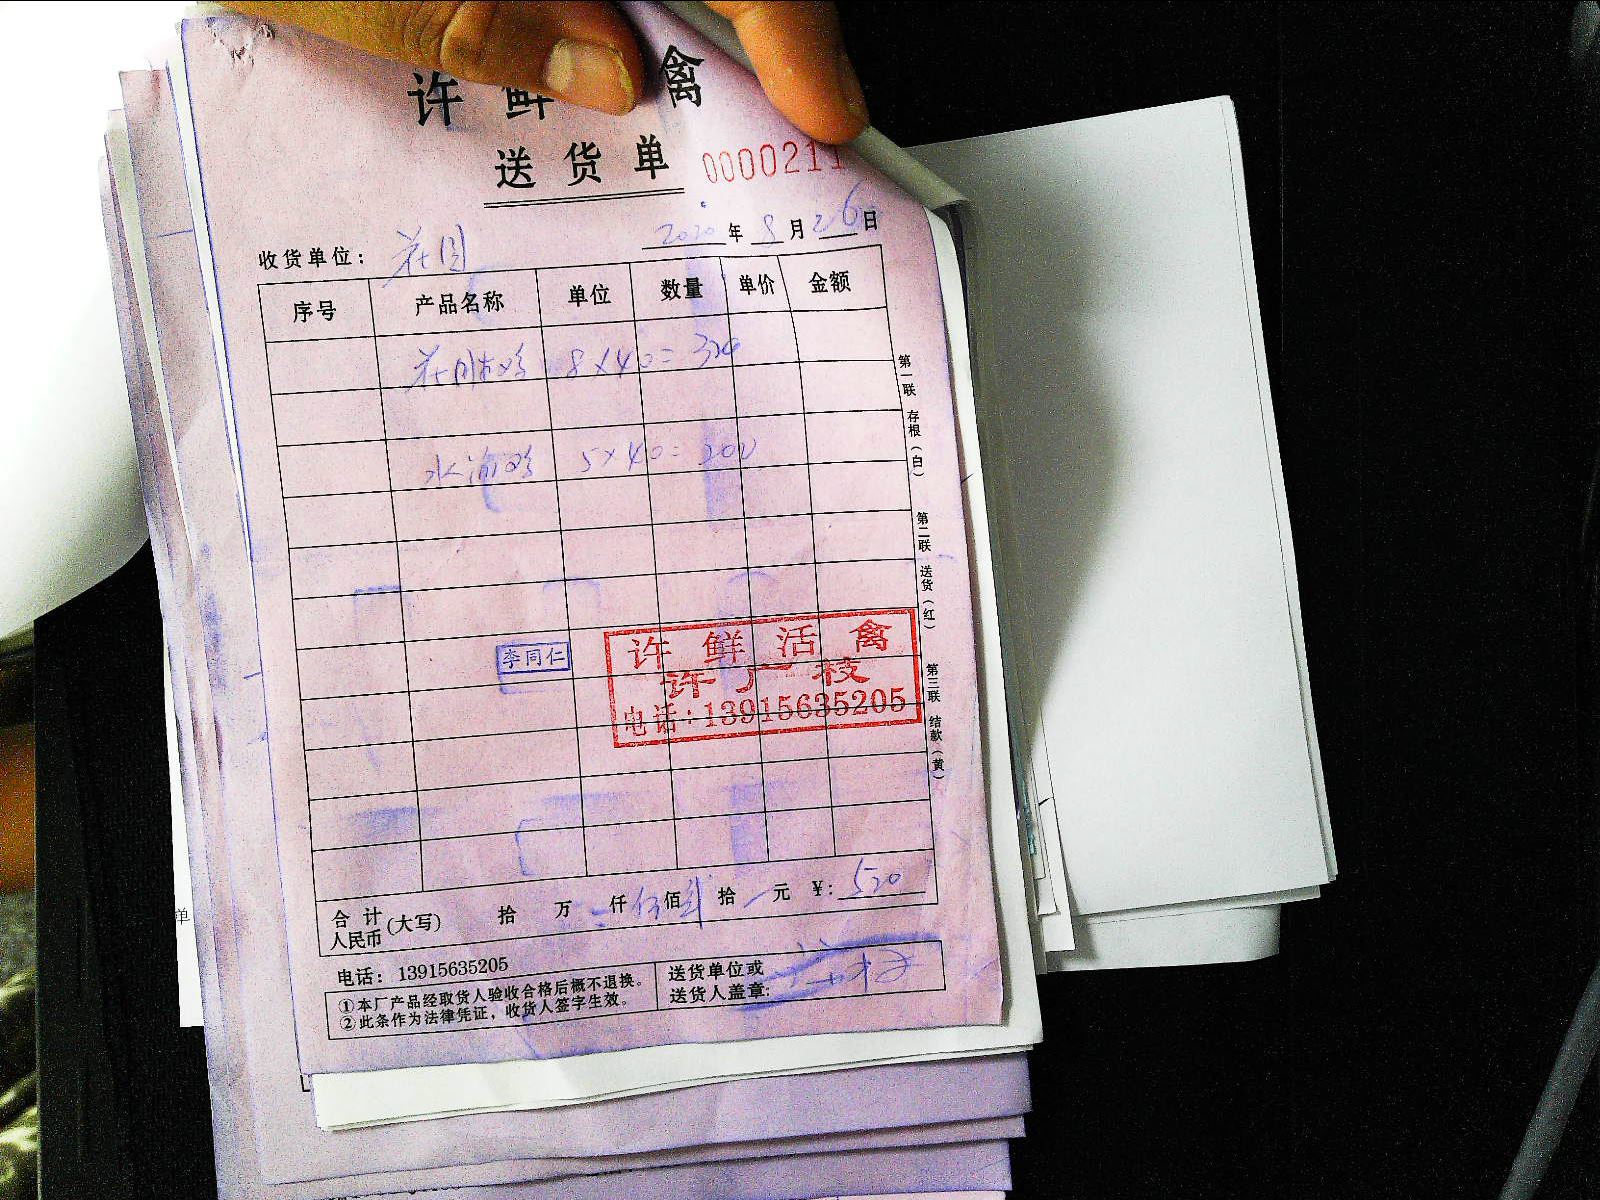 许鲜 禽
送货单 0000211
收货单位： 花园 2020年8月26日
序号 产品名称 单位 数量 单价 金额
花园 8×40=320
水 5×40=200
李同仁
许鲜活禽
许广枝
电话：13915635205
合计(大写) 人民币 拾 万 仟 伍佰贰拾 元 ¥：520
电话：13915635205
①本厂产品经取货人验收合格后概不退换。
②此条作为法律凭证，收货人签字生效。
送货单位或
送货人盖章：
第一联 存根（白） 第二联 送货（红） 第三联 结款（黄）
单